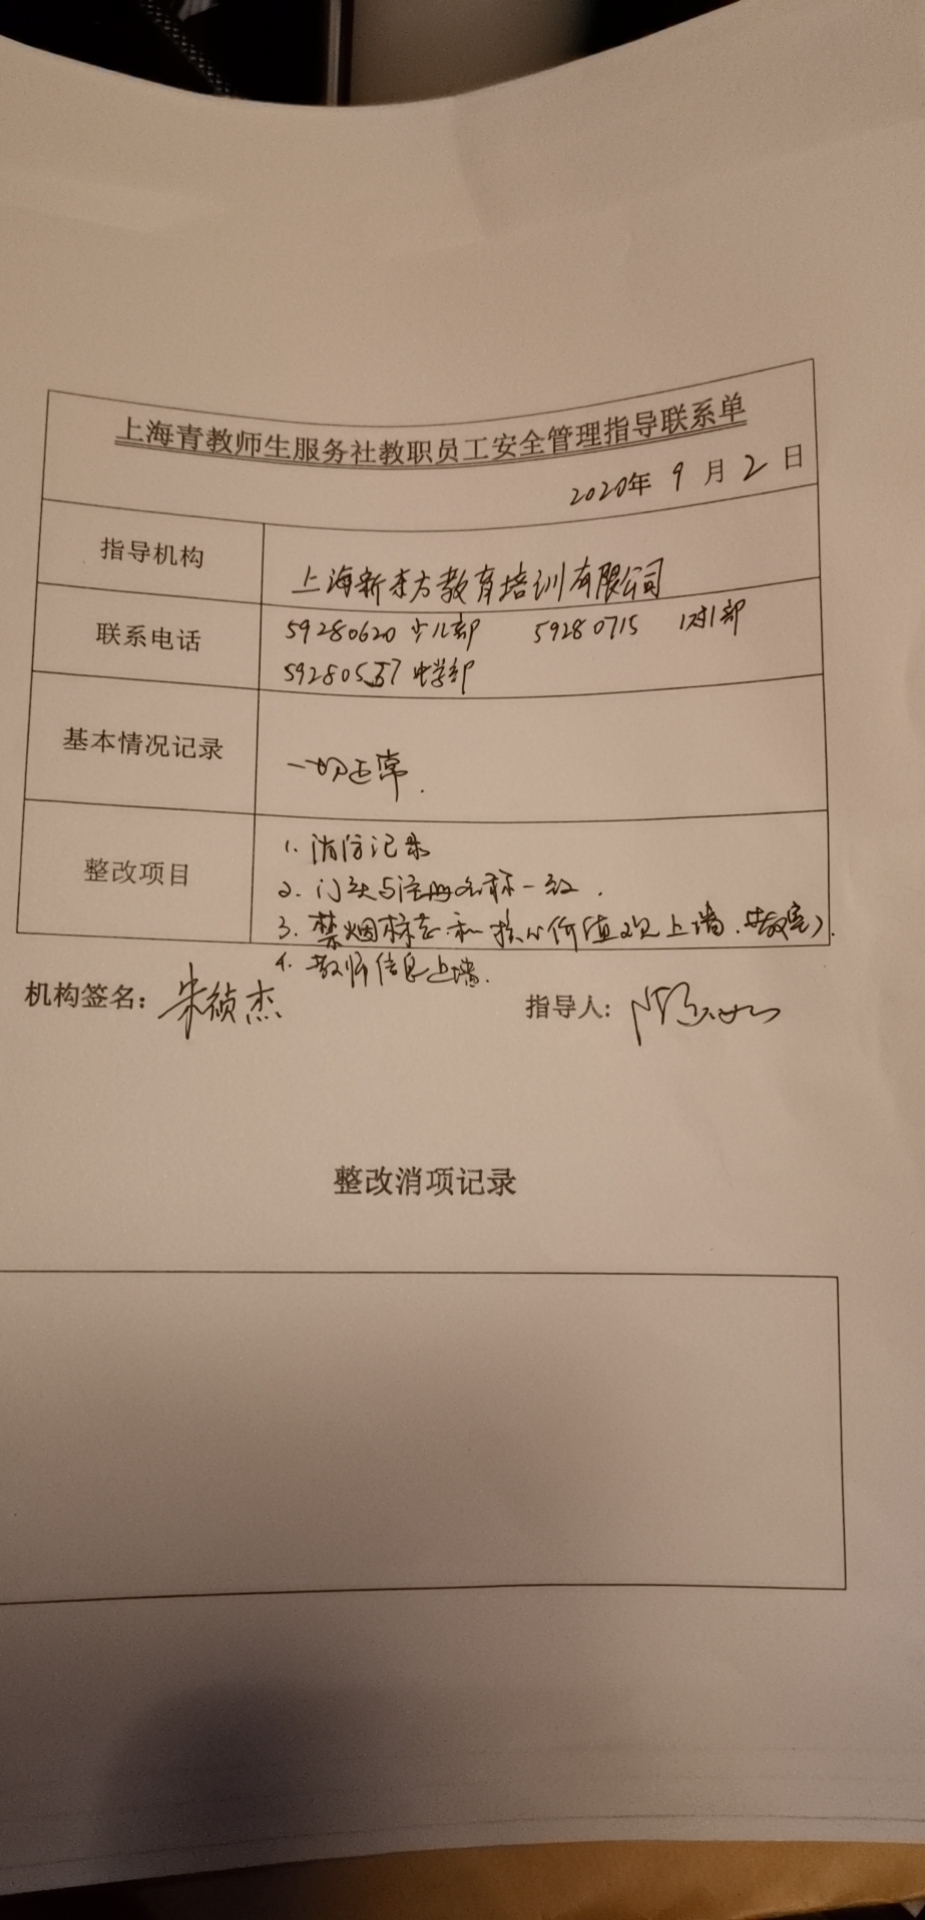 上海青教师生服务社教职员工安全管理指导联系单
2020年 9 月 2 日
指导机构
上海新东方教育培训有限公司
联系电话
59280620 少儿部 59280715 1对1部
592805 7 中学部
基本情况记录
一切正常.
整改项目
1. 消防记录
2. 门头与注册名称一致.
3. 禁烟标志和核心价值观上墙.(教室)
4. 教师信息上墙.
机构签名: 朱祯杰
指导人:
整改消项记录